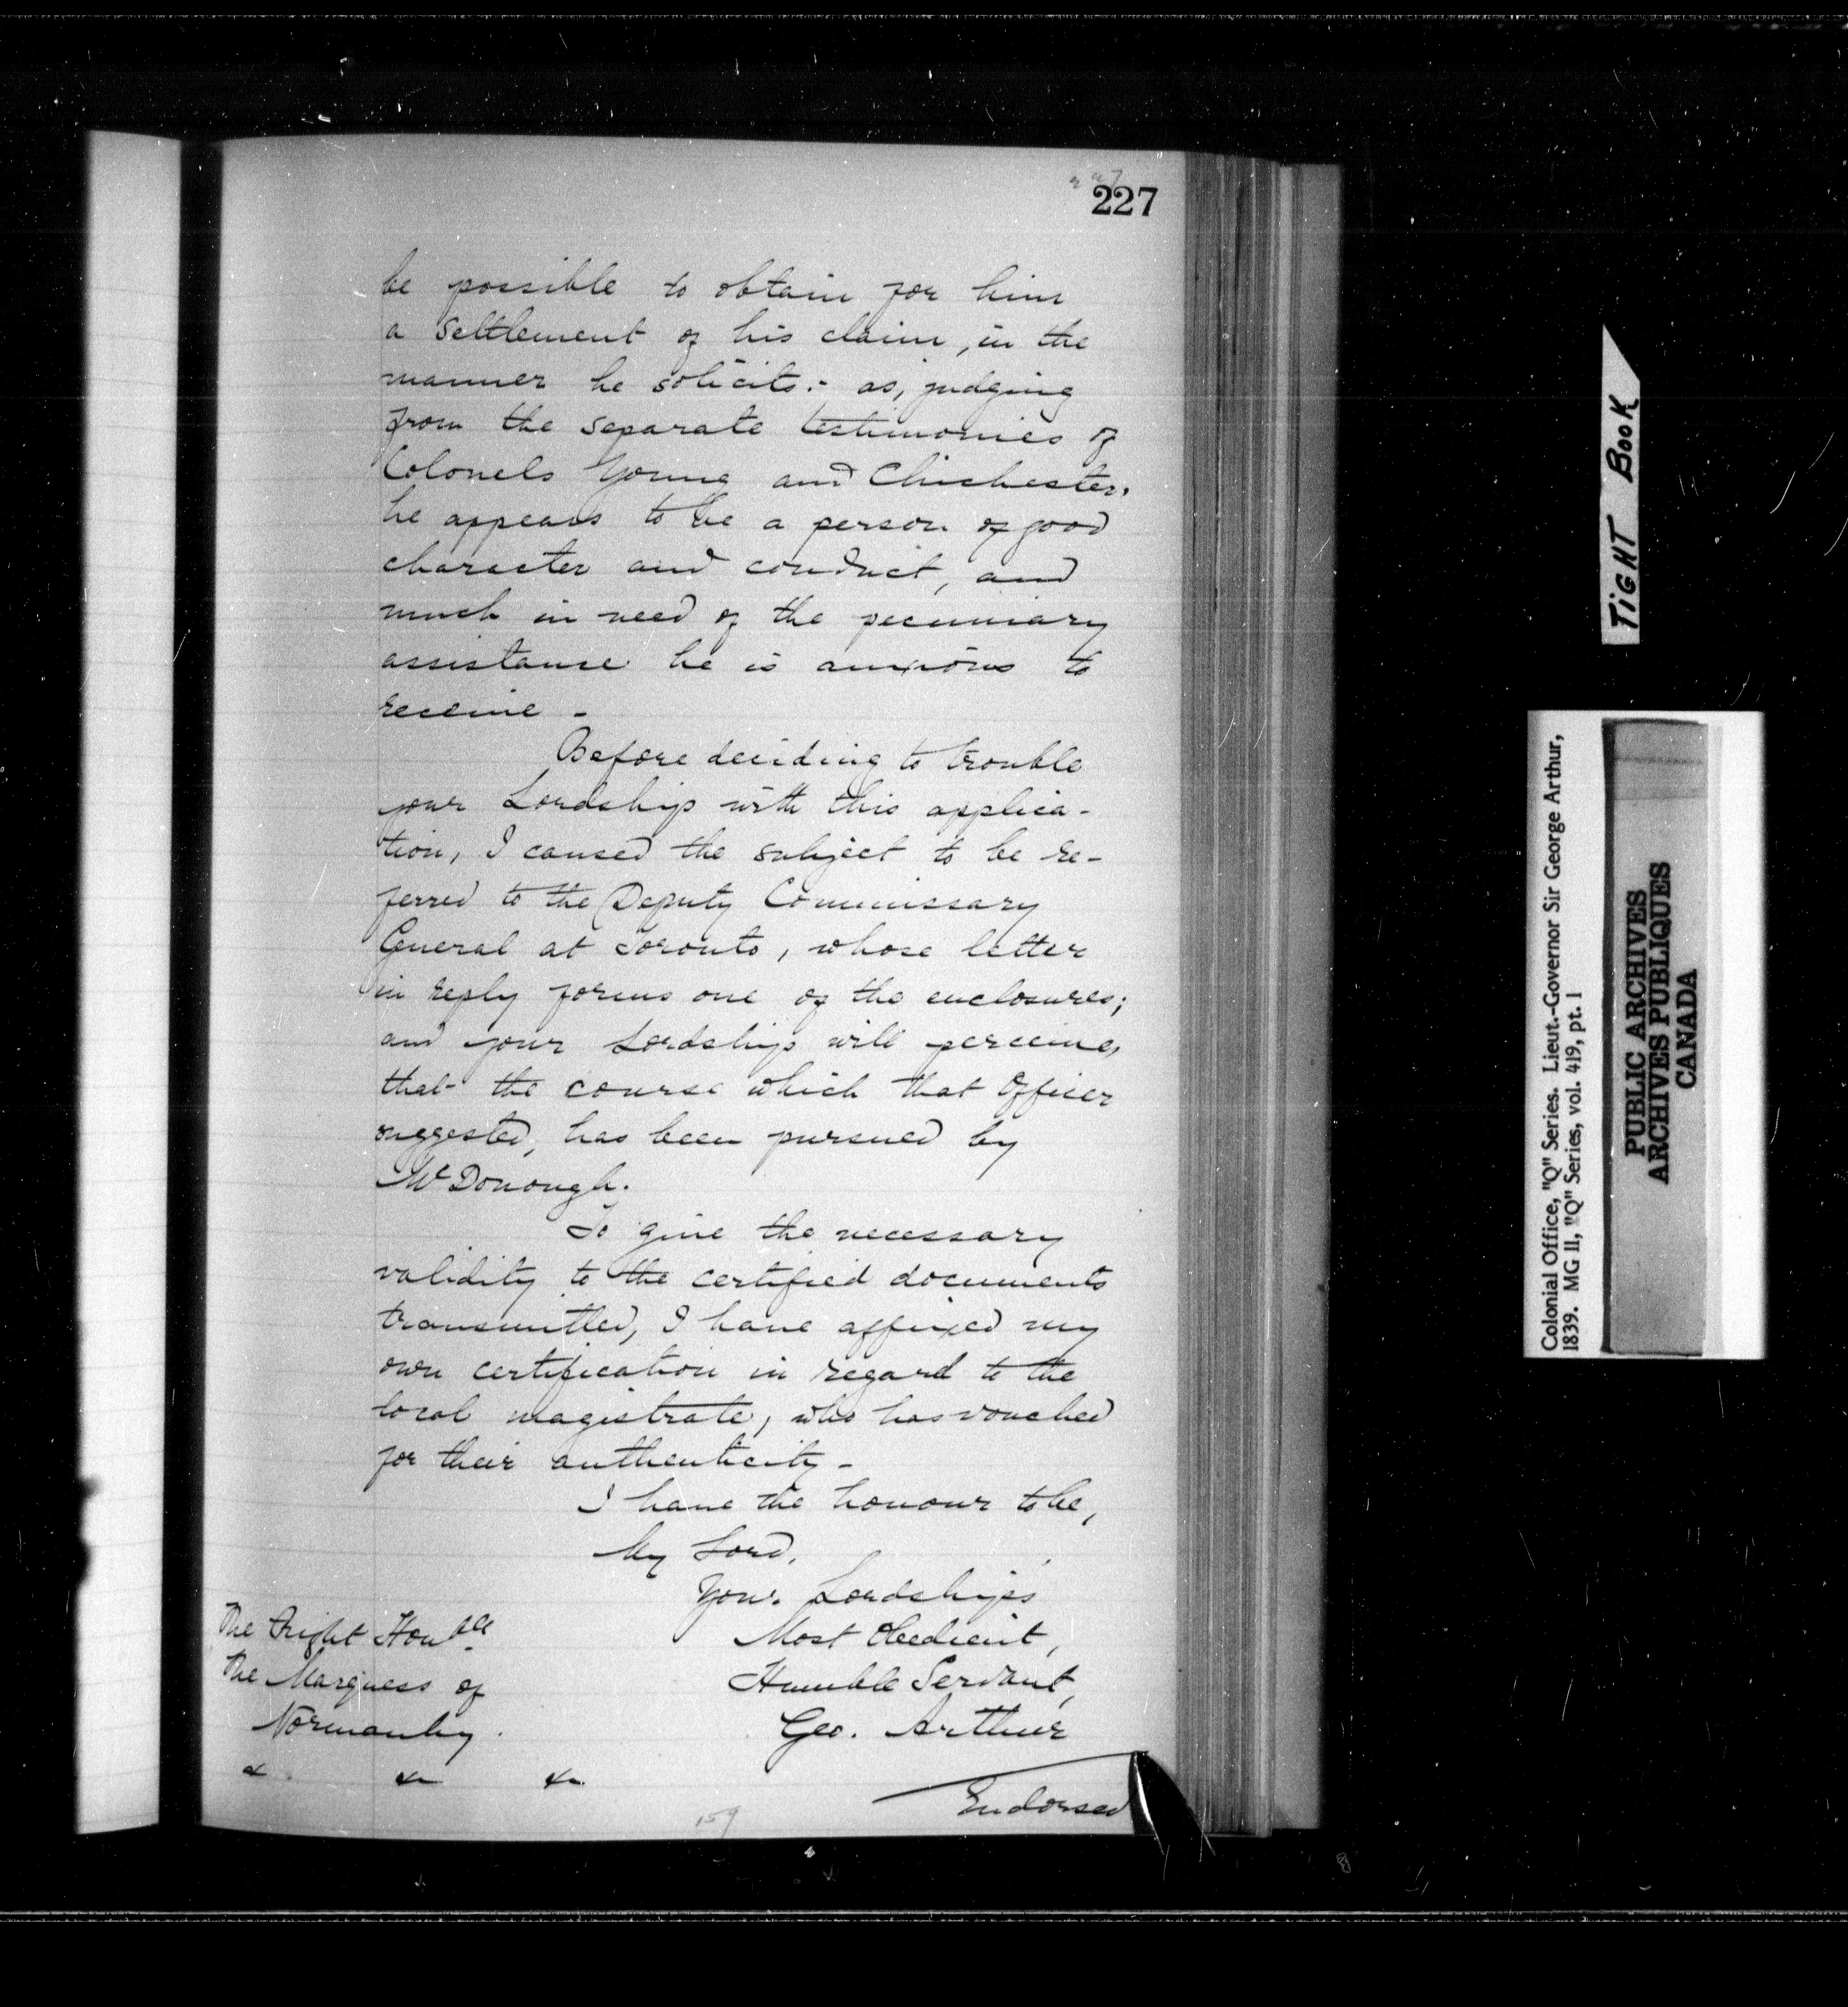 227
227
be possible to obtain for him
a settlement of his claim, in the
manner he solicits:- as, judging
from the separate testimonies of
Colonels Young and Chichester,
he appears to be a person of good
character and conduct, and
much in need of the pecuniary
assistance he is anxious to
receive -
Before deciding to trouble
your Lordship with this applica-
tion, I caused the subject to be re-
ferred to the Deputy Commissary
General at Toronto, whose letter
in reply forms one of the enclosures;
and your Lordship will perceive,
that the course which that Officer
suggested, has been pursued by
McDonough.
To give the necessary
validity to the certified documents
transmitted, I have affixed my
own certification in regard to the
local magistrate, who has vouched
for their authenticity -
I have the honour to be,
My Lord,
Your Lordship's
Most Obedient,
Humble Servant,
Geo. Arthur
The Right Honble
The Marquess of
Normanby.
&c &c &c
Endorsed
159
TIGHT BOOK
Colonial Office, "Q" Series. Lieut.-Governor Sir George Arthur,
1839. MG 11, "Q" Series, vol. 419, pt. 1
PUBLIC ARCHIVES
ARCHIVES PUBLIQUES
CANADA